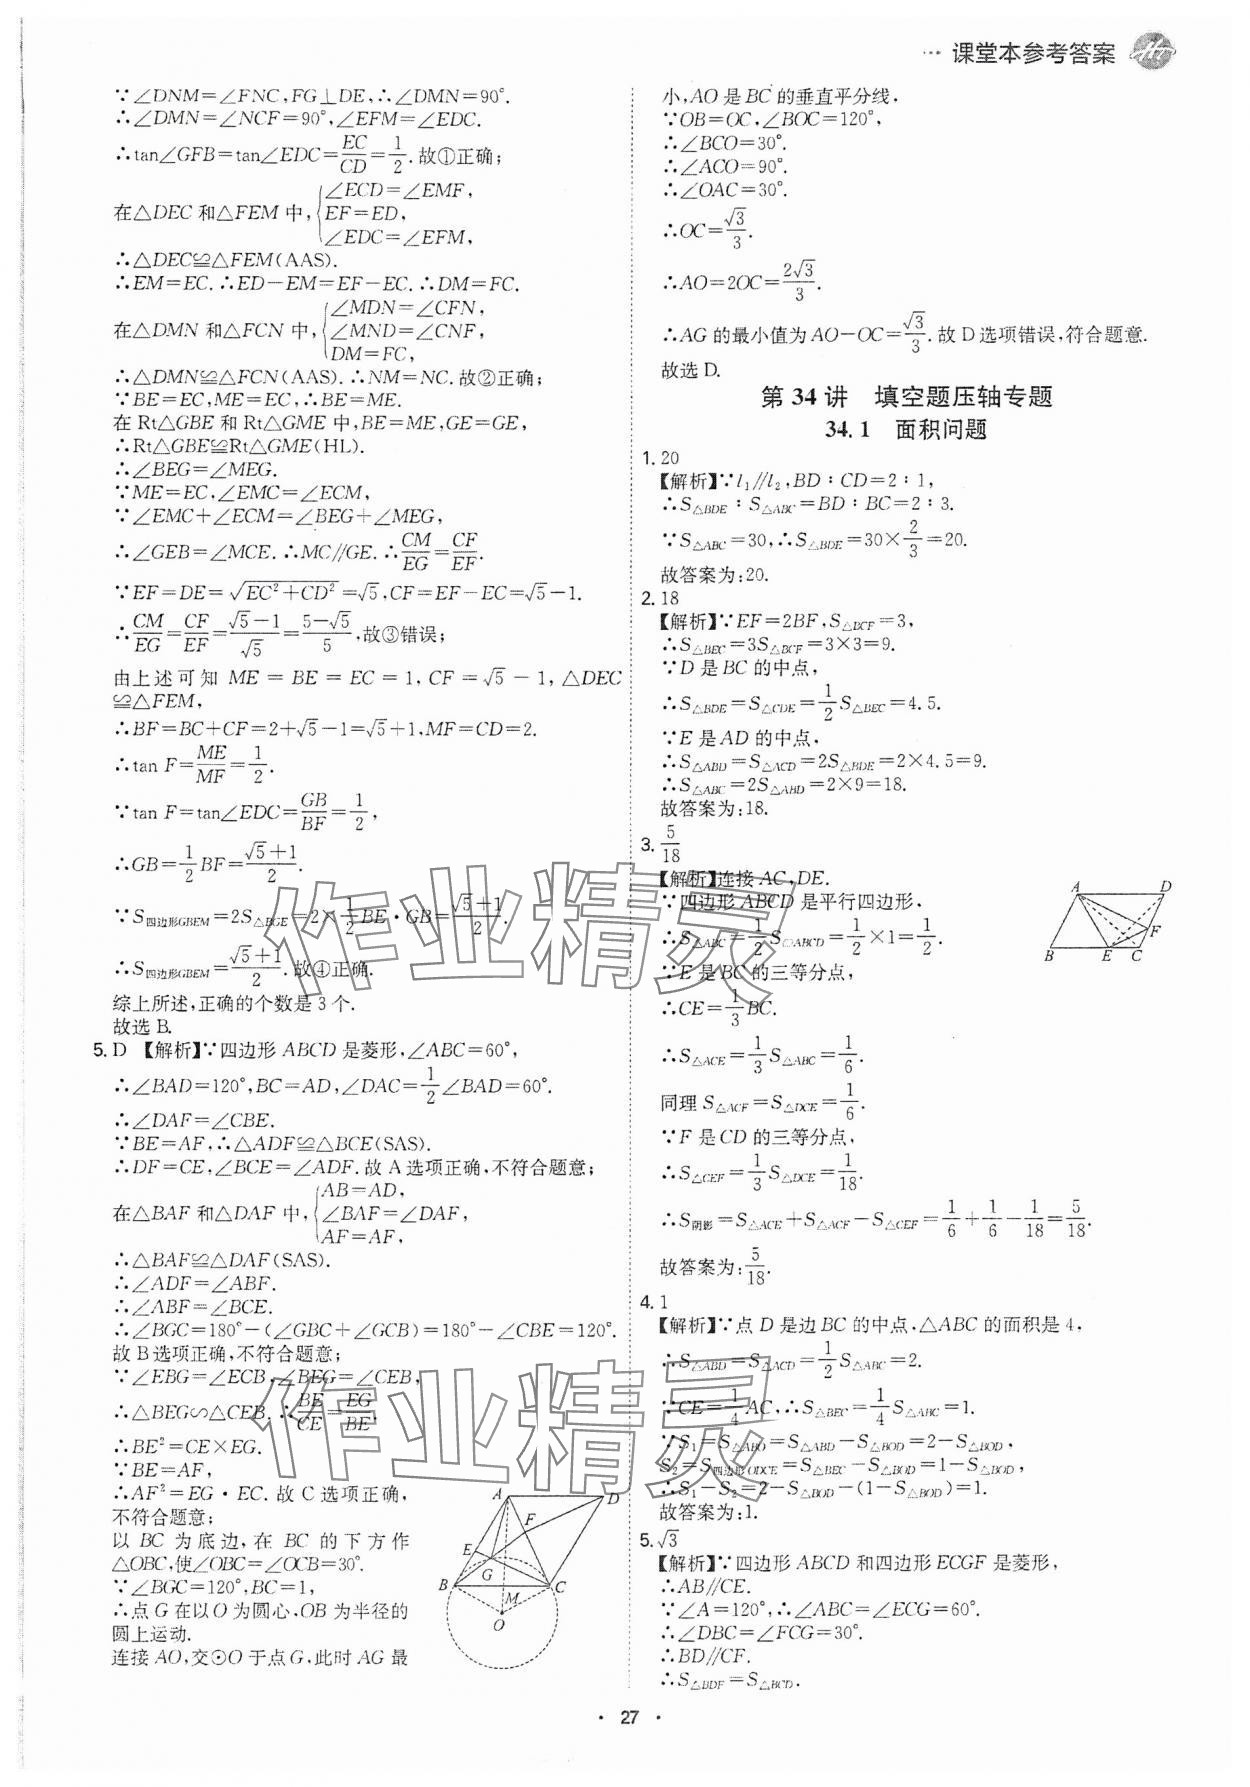 ··· 课堂本参考答案
∵∠DNM=∠FNC,FG⊥DE,∴∠DMN=90°.
∴∠DMN=∠NCF=90°,∠EFM=∠EDC.
∴tan∠GFB=tan∠EDC=EC/CD=1/2.故①正确;
在△DEC和△FEM中,{∠ECD=∠EMF,
EF=ED,
∠EDC=∠EFM,
∴△DEC≌△FEM(AAS).
∴EM=EC.∴ED−EM=EF−EC.∴DM=FC.
在△DMN和△FCN中,{∠MDN=∠CFN,
∠MND=∠CNF,
DM=FC,
∴△DMN≌△FCN(AAS).∴NM=NC.故②正确;
∵BE=EC,ME=EC,∴BE=ME.
在Rt△GBE和Rt△GME中,BE=ME,GE=GE,
∴Rt△GBE≌Rt△GME(HL).
∴∠BEG=∠MEG.
∵ME=EC,∠EMC=∠ECM,
∵∠EMC+∠ECM=∠BEG+∠MEG,
∴∠GEB=∠MCE.∴MC∥GE.∴CM/EG=CF/EF.
∵EF=DE=√(EC²+CD²)=√5,CF=EF−EC=√5−1.
∴CM/EG=CF/EF=(√5−1)/√5=(5−√5)/5,故③错误;
由上述可知ME=BE=EC=1,CF=√5−1,△DEC
≌△FEM,
∴BF=BC+CF=2+√5−1=√5+1,MF=CD=2.
∴tan F=ME/MF=1/2.
∵tan F=tan∠EDC=GB/BF=1/2,
∴GB=1/2BF=(√5+1)/2.
∵S四边形GBEM=2S△BGE=2×1/2BE·GB=(√5+1)/2.
∴S四边形GBEM=(√5+1)/2.故④正确.
综上所述,正确的个数是3个.
故选B.
5.D 【解析】∵四边形ABCD是菱形,∠ABC=60°,
∴∠BAD=120°,BC=AD,∠DAC=1/2∠BAD=60°.
∴∠DAF=∠CBE.
∵BE=AF,∴△ADF≌△BCE(SAS).
∴DF=CE,∠BCE=∠ADF.故A选项正确,不符合题意;
在△BAF和△DAF中,{AB=AD,
∠BAF=∠DAF,
AF=AF,
∴△BAF≌△DAF(SAS).
∴∠ADF=∠ABF.
∴∠ABF=∠BCE.
∴∠BGC=180°−(∠GBC+∠GCB)=180°−∠CBE=120°.
故B选项正确,不符合题意;
∵∠EBG=∠ECB,∠BEG=∠CEB,
∴△BEG∽△CEB.∴BE/CE=EG/BE.
∴BE²=CE×EG.
∵BE=AF,
∴AF²=EG·EC.故C选项正确,
不符合题意;
以BC为底边,在BC的下方作
△OBC,使∠OBC=∠OCB=30°.
∵∠BGC=120°,BC=1,
∴点G在以O为圆心,OB为半径的
圆上运动.
连接AO,交⊙O于点G,此时AG最
A D F E G B M C O
小,AO是BC的垂直平分线.
∵OB=OC,∠BOC=120°,
∴∠BCO=30°.
∴∠ACO=90°.
∴∠OAC=30°.
∴OC=√3/3.
∴AO=2OC=2√3/3.
∴AG的最小值为AO−OC=√3/3.故D选项错误,符合题意.
故选D.
第34讲 填空题压轴专题
34.1 面积问题
1.20
【解析】∵l₁∥l₂,BD∶CD=2∶1,
∴S△BDE∶S△ABC=BD∶BC=2∶3.
∵S△ABC=30,∴S△BDE=30×2/3=20.
故答案为:20.
2.18
【解析】∵EF=2BF,S△BCF=3,
∴S△BEC=3S△BCF=3×3=9.
∵D是BC的中点,
∴S△BDE=S△CDE=1/2S△BEC=4.5.
∵E是AD的中点,
∴S△ABD=S△ACD=2S△BDE=2×4.5=9.
∴S△ABC=2S△ABD=2×9=18.
故答案为:18.
3.5/18
【解析】连接AC,DE.
∵四边形ABCD是平行四边形,
∴S△ABC=1/2S▱ABCD=1/2×1=1/2.
∵E是BC的三等分点,
∴CE=1/3BC.
∴S△ACE=1/3S△ABC=1/6.
同理S△ACF=S△DCE=1/6.
∵F是CD的三等分点,
∴S△CEF=1/3S△DCE=1/18.
∴S阴影=S△ACE+S△ACF−S△CEF=1/6+1/6−1/18=5/18.
故答案为:5/18.
A D F B E C
4.1
【解析】∵点D是边BC的中点,△ABC的面积是4,
∴S△ABD=S△ACD=1/2S△ABC=2.
∵CE=1/4AC,∴S△BEC=1/4S△ABC=1.
∵S₁=S△ABO=S△ABD−S△BOD=2−S△BOD,
S₂=S四边形ODCE=S△BEC−S△BOD=1−S△BOD,
∴S₁−S₂=2−S△BOD−(1−S△BOD)=1.
故答案为:1.
5.√3
【解析】∵四边形ABCD和四边形ECGF是菱形,
∴AB∥CE.
∵∠A=120°,∴∠ABC=∠ECG=60°.
∴∠DBC=∠FCG=30°.
∴BD∥CF.
∴S△BDF=S△BCD.
· 27 ·
作业精灵
作业精灵